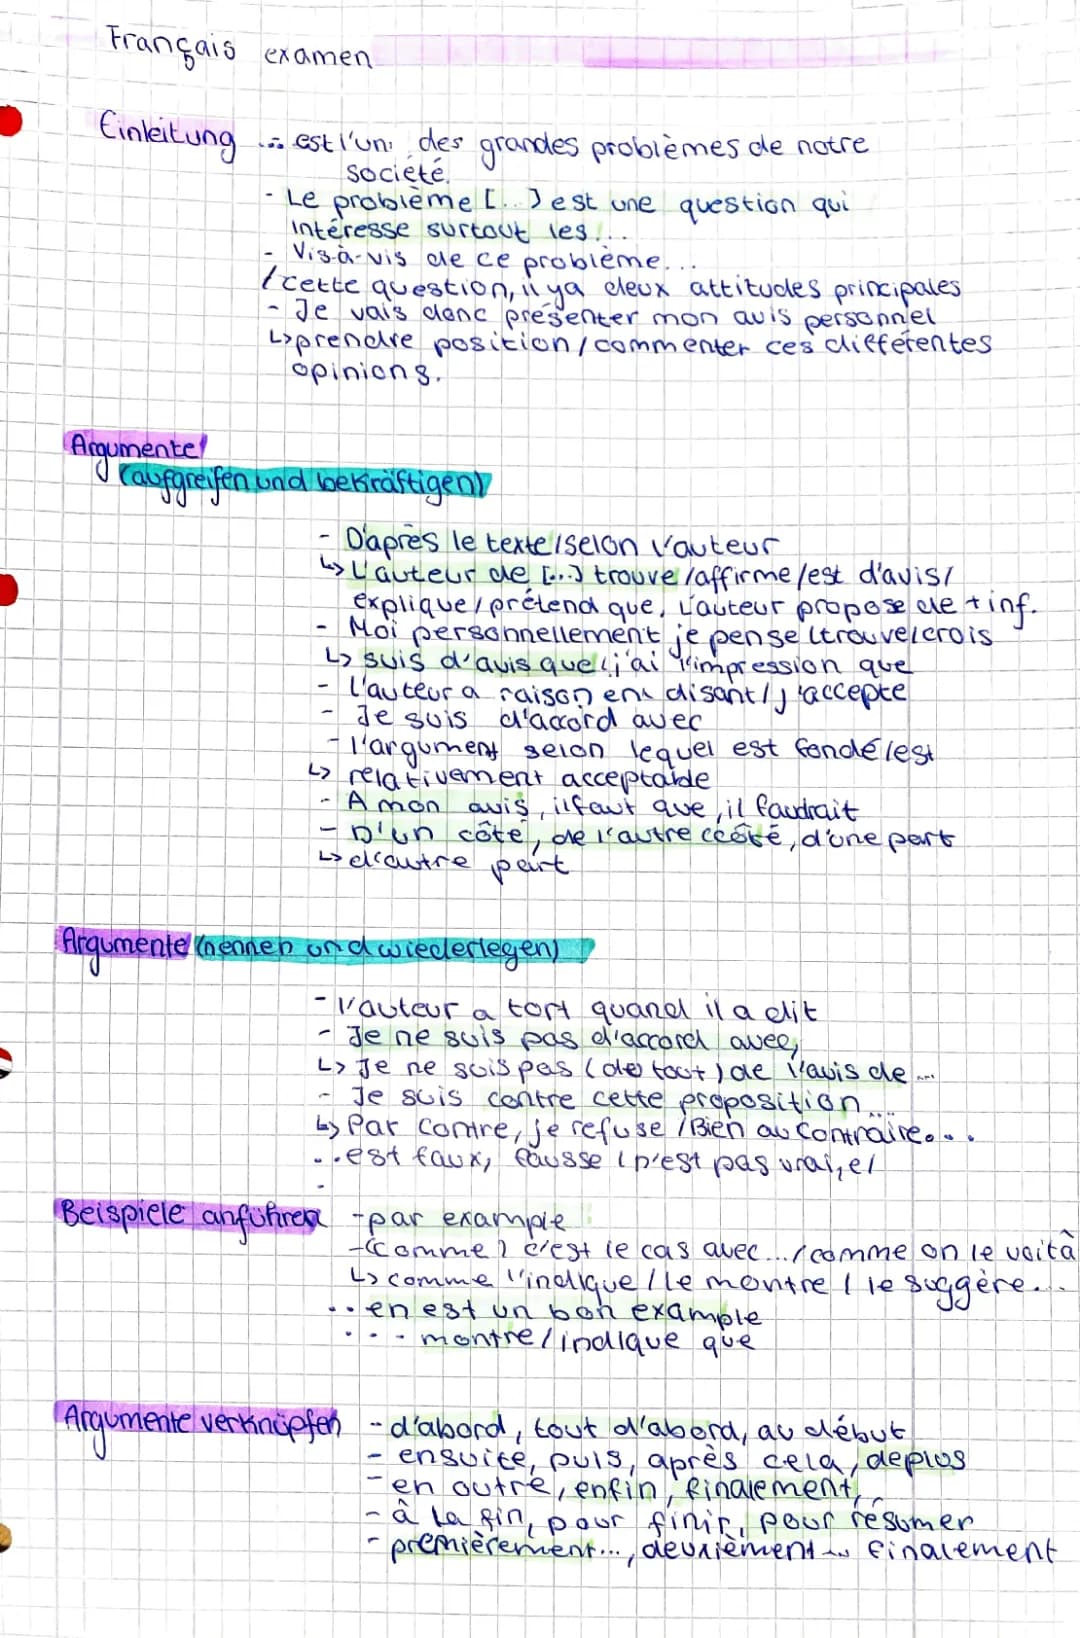 Français examen
Einleitung ... est l'un des grandes problèmes de notre
société.
- Le problème [...] est une question qui
intéresse surtout les...
- Vis-à-vis de ce problème...
/cette question, il ya deux attitudes principales
- Je vais donc présenter mon avis personnel
↳prendre position/commenter ces différentes
opinions.
Argumente
(aufgreifen und bekräftigen)
- D'après le texte/selon l'auteur
↳ L'auteur de [...] trouve/affirme/est d'avis/
explique/prétend que, L'auteur propose de + inf.
- Moi personnellement je pense (trouve/crois
↳ suis d'avis que (j'ai l'impression que
- l'auteur a raison en disant/j'accepte
- Je suis d'accord avec
- l'argument selon lequel est fondé/est
↳ relativement acceptable
- A mon avis, il faut que, il faudrait
- D'un côté, de l'autre côté, d'une part
↳ d'autre part
Argumente (nennen und wiederlegen)
- l'auteur a tort quand il a dit
- Je ne suis pas d'accord avec,
↳ Je ne suis pas (de tout) de l'avis de ...
- Je suis contre cette proposition...
↳ Par contre, je refuse /Bien au contraire...
..est faux, fausse (n'est pas vrai, e/
Beispiele anführen - par example
- (comme) c'est le cas avec.../comme on le voit à
↳ comme l'indique / le montre / le suggère...
.. en est un bon example
... montre/indique que
Argumente verknüpfen - d'abord, tout d'abord, au début
- ensuite, puis, après cela, deplus
- en outre, enfin, finalement,
- à la fin, pour finir, pour résumer
- premièrement..., deuxièment ... finalement